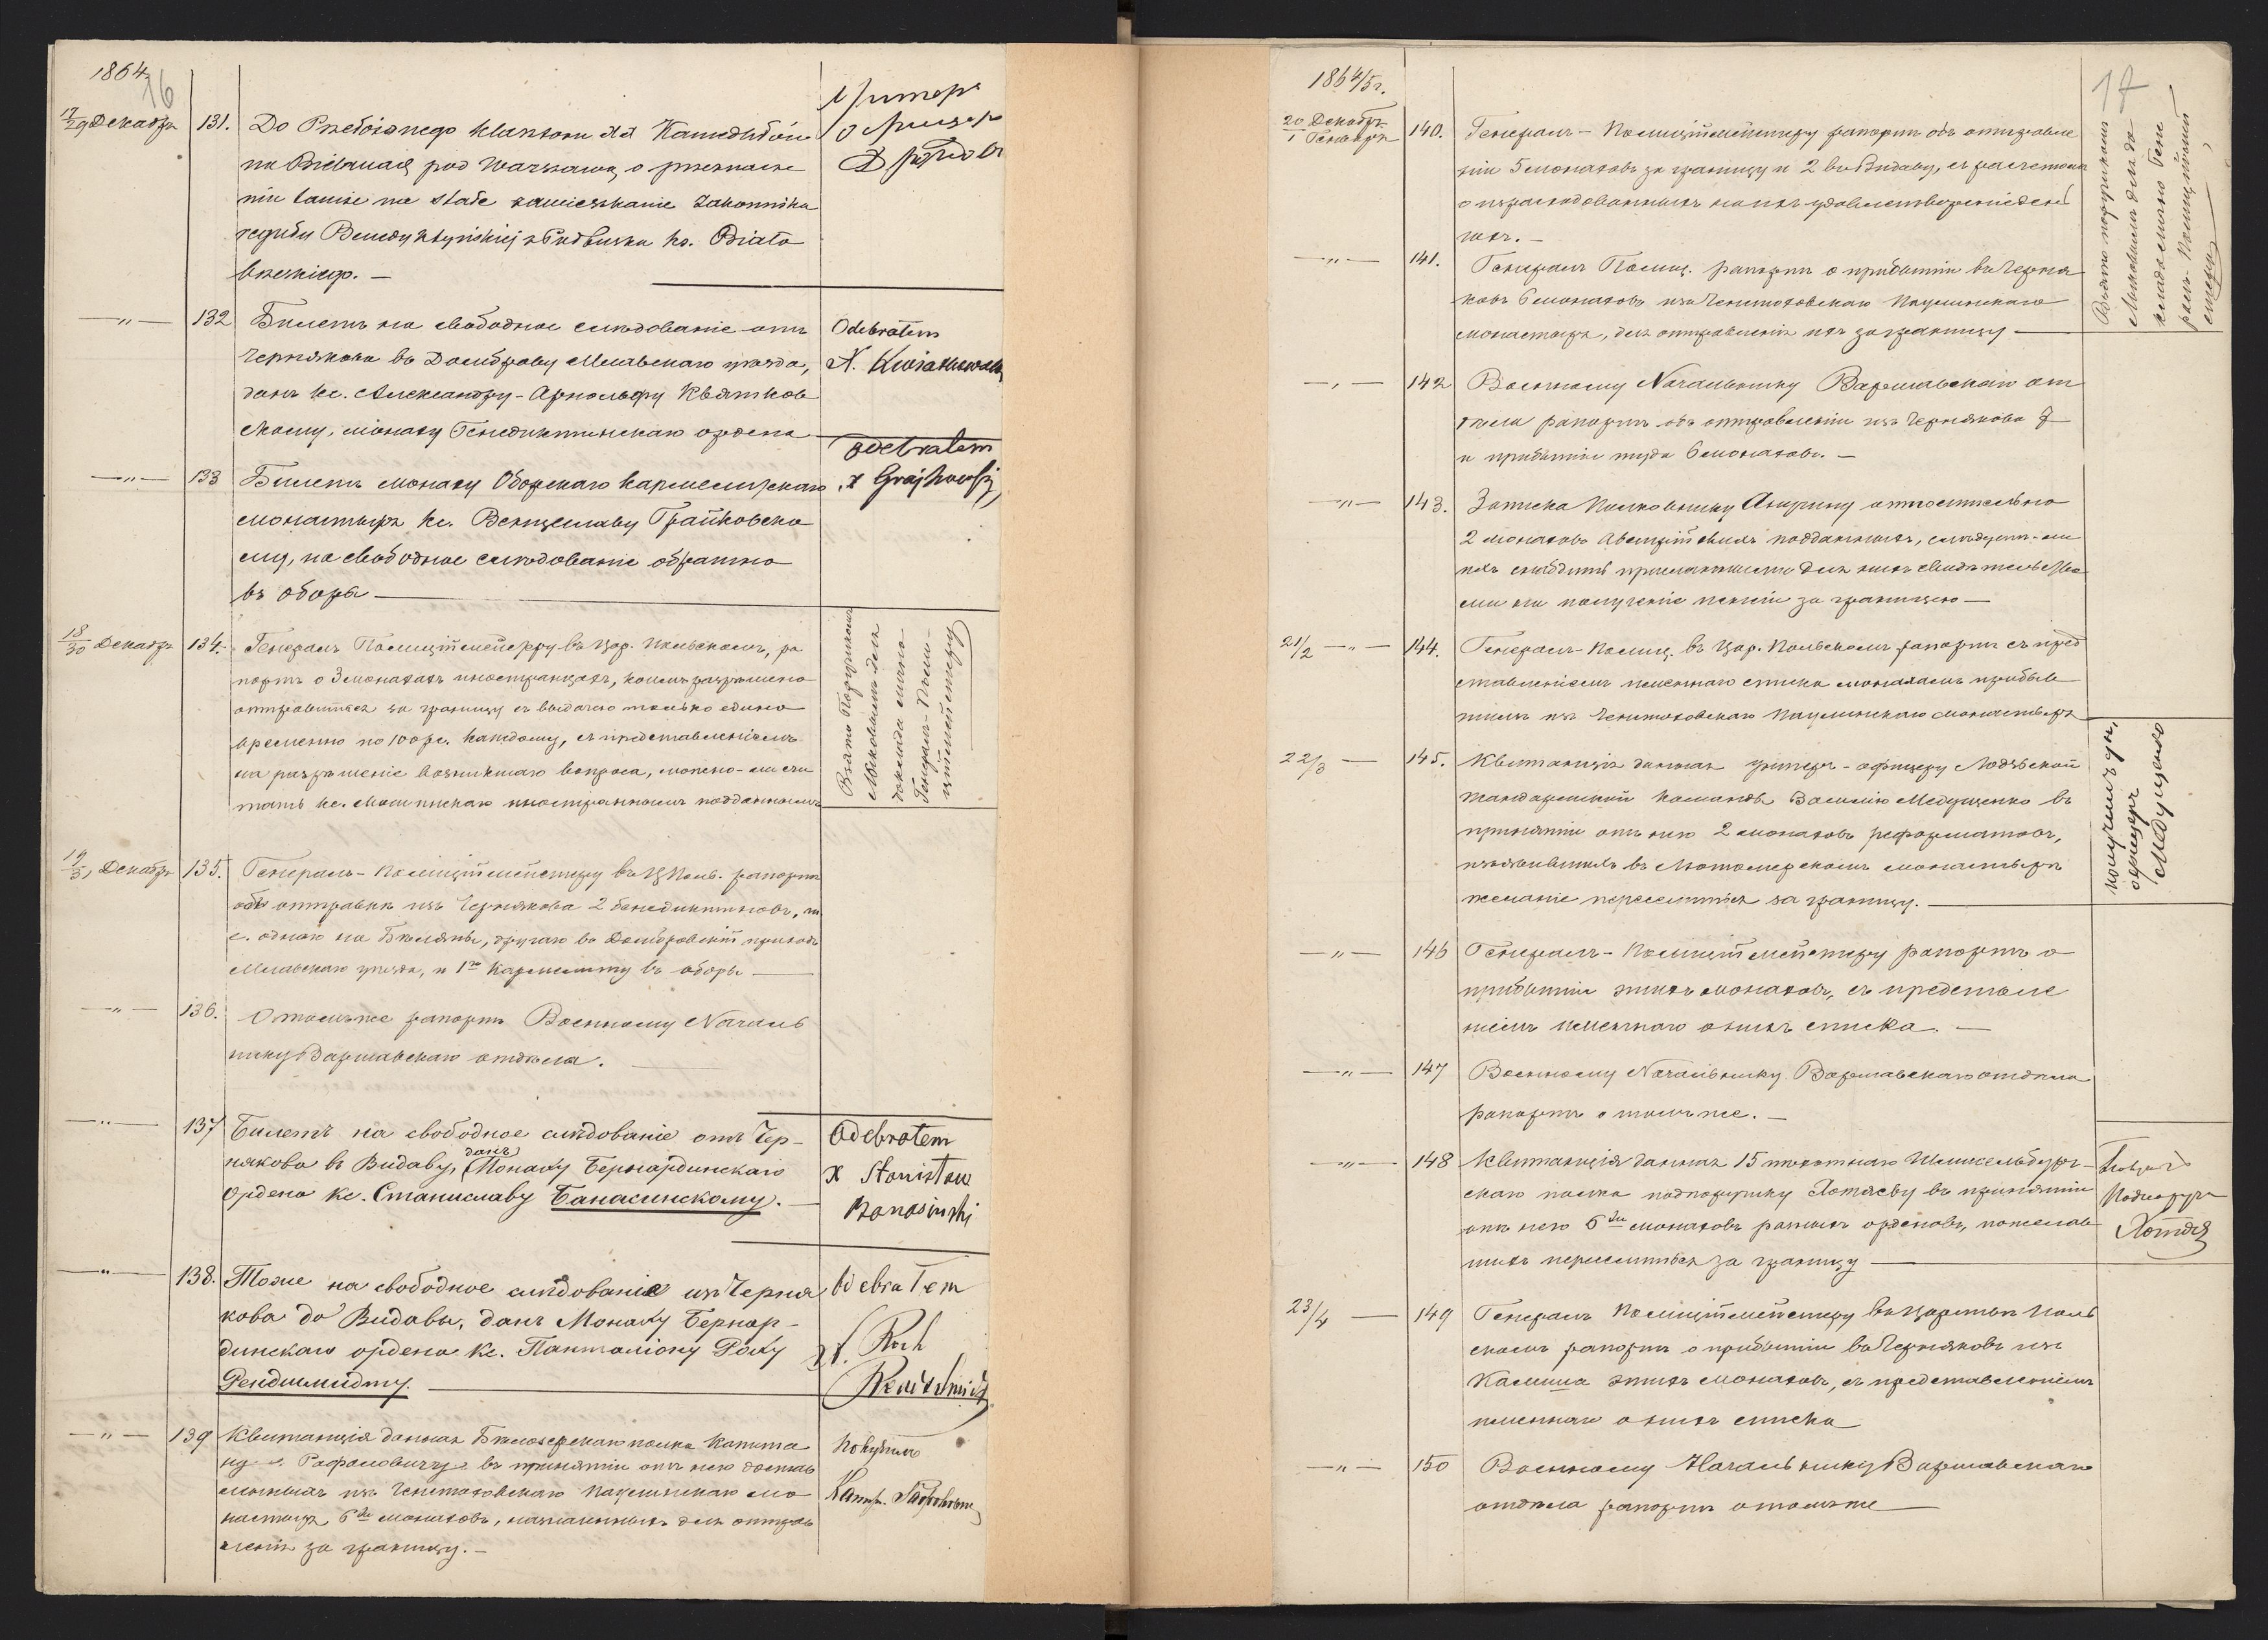 1864
16
17/29 Декабря 131. Do Przełożonego klasztoru XX Kamedułów
na Bielanach pod Warszawą o przeznacze
niu tamże na stałe zamieszkanie Zakonnika
reguły Benedyktyńskiej z Pułtuska ks. Biało
brzeskiego. —
—„— 132 Билетъ на свободное слѣдованіе отъ
Чернякова въ Домброву Млавскаго уѣзда,
данъ кс. Александру-Арнольфу Квятков
скому, монаху Бенедиктинскаго ордена
Odebrałem
X. Kwiatkowski
—„— 133 Билетъ монаху Оборскаго кармелитскаго
монастыря кс. Венцеславу Грайковско
му, на свободное слѣдованіе обратно
въ оборы
odebrałem
x Grajkowski
18/30 Декабря 134. Генералъ Полиціймейстеру въ Цар. Польскомъ, ра
портъ о 3 монахахъ иностранцахъ, коимъ разрѣшено
отправиться за границу съ выдачею только едино
временно по 100 рс. каждому, съ представленіемъ
на разрѣшеніе возникшаго вопроса, можно-ли счи
тать кс. иностраннымъ подданнымъ
Взято Порутчикомъ
Маковымъ для
доклада лично
Генералъ-Поли-
цiймейстеру
19/31 Декабря 135. Генералъ-Полиціймейстеру въ Ц Поль. рапортъ
объ отправкѣ изъ Чернякова 2 бенедиктиновъ, т.
е. одного на Бѣляны, другаго въ Домбровскій приходъ
Млавскаго уѣзда, и 1го Кармелиту въ оборы —
—„— 136. О томъ же рапортъ Военному Началь
нику Варшавскаго отдѣла.
—„— 137 Билетъ на свободное слѣдованіе отъ Чер-
някова въ Видаву, данъ Монаху Бернардинскаго
ордена кс. Станиславу Банасинскому. —
Odebrałem
X Stanisław
Banasiński
—„— 138. Тоже на свободное слѣдованіе изъ Черня
кова до Видавы, данъ Монаху Бернар-
динскаго ордена Кс. Панталіону Роху
Рендшмидту.
Odebrałem
X. Roch
Rendschmidt
—„— 139 Квитанція данная Бѣлозерскаго полка Капита
ну Рафаловичу въ принятіи отъ него достав
ленныхъ изъ Ченстоховскаго Паулинскаго мо
настыря 6ти монаховъ, назначенныхъ для отправ
ленія за границу. —
получилъ
Капит. Рафалович
1864/5 г.
17
20 Декабря
1 Генваря 140. Генералъ-Полиціймейстеру рапортъ объ отправле
ніи 5 монаховъ за границу и 2 въ Видаву, съ расчетомъ
о израсходованныхъ на ихъ удовлетвореніе день
гахъ. —
Взято порутчикомъ
Маковымъ для до
клада лично Гене
ралъ-Полиційм
ейстеру
—„— 141. Генералъ Полиц. рапортъ о прибытіи въ Черня
ковъ 6 монаховъ изъ Ченстоховскаго Паулинскаго
монастыря, для отправленія ихъ заграницу —
—„— 142 Военному Начальнику Варшавскаго от
дѣла рапортъ объ отправленіи изъ Чернякова 7
и прибытіи туда 6 монаховъ. —
—„— 143. Записка Полковнику относительно
2 монаховъ Австрійскихъ подданныхъ, слѣдуетъ-ли
ихъ снабдить присланными для нихъ свидѣтельства
ми на полученіе пенсіи за границею —
21/2 —„— 144. Генералъ-Полиц. въ Цар. Польскомъ рапортъ съ пред
ставленіемъ именнаго списка монахамъ прибыв
шимъ изъ Ченстоховскаго Паулинскаго монастыря
22/3 — 145. Квитанція данная унтеръ-офицеру Лодзьской
Жандармской команды Василію Медущенко въ
принятіи отъ него 2 монаховъ реформатовъ,
изъявившихъ въ Лютомерскомъ монастырѣ
желаніе переселиться за границу. —
получилъ ун.
офицеръ
Медущенко
—„— 146 Генералъ-Полиціймейстеру рапортъ о
прибытіи этихъ монаховъ, съ представле
ніемъ именнаго о нихъ списка. —
—„— 147 Военному Начальнику Варшавскаго отдѣла
рапортъ о томъ же. —
—„— 148 Квитанція данная 15 пѣхотнаго Шлиссельбург-
скаго полка подпоручику Хотяеву въ принятіи
отъ него 6ти монаховъ разныхъ орденовъ, пожелав
шихъ переселиться за границу
Подпоруч
23/4 — 149 Генералъ Полиціймейстеру въ Царствѣ Поль
скомъ рапортъ о прибытіи въ Черняковъ изъ
Калиша этихъ монаховъ, съ представленіемъ
именнаго о нихъ списка
—„— 150 Военному Начальнику Варшавскаго
отдѣла рапортъ о томъ же